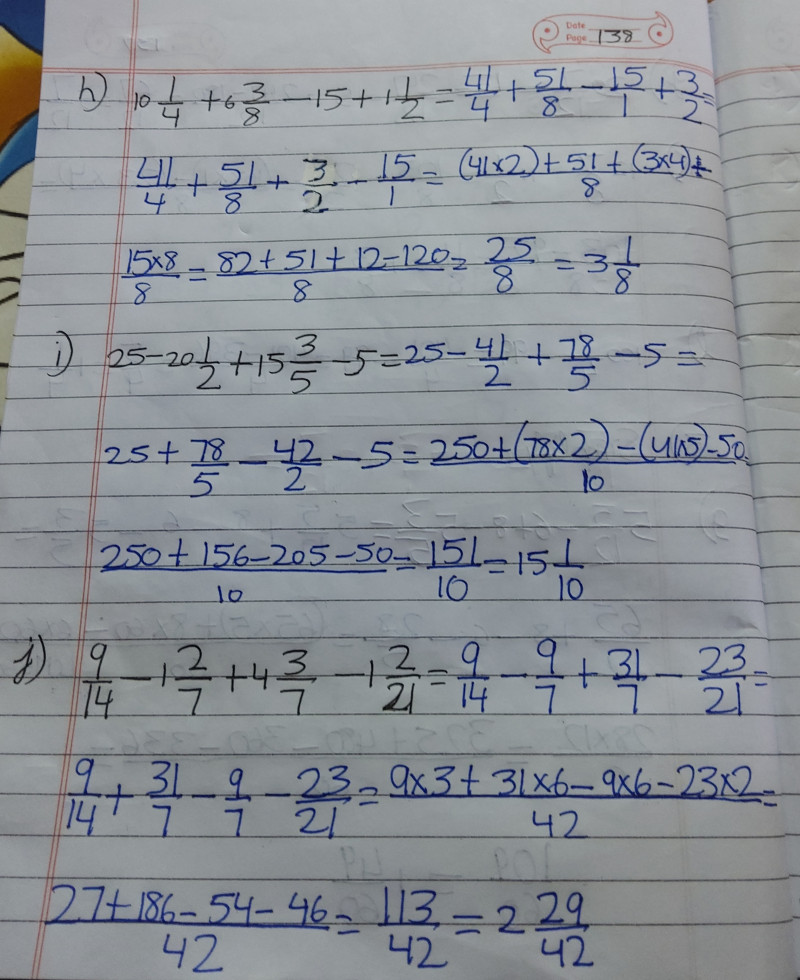 Date
Page 138
h) 10 1/4 + 6 3/8 - 15 + 1 1/2 = 41/4 + 51/8 - 15/1 + 3/2 =
41/4 + 51/8 + 3/2 - 15/1 = (41×2) + 51 + (3×4) + / 8
15×8/8 = 82 + 51 + 12 - 120/8 = 25/8 = 3 1/8
i) 25 - 20 1/2 + 15 3/5 - 5 = 25 - 41/2 + 78/5 - 5 =
25 + 78/5 - 42/2 - 5 = 250 + (78×2) - (41×5) - 50/10
250 + 156 - 205 - 50/10 = 151/10 = 15 1/10
j) 9/14 - 1 2/7 + 4 3/7 - 1 2/21 = 9/14 - 9/7 + 31/7 - 23/21 =
9/14 + 31/7 - 9/7 - 23/21 = 9×3 + 31×6 - 9×6 - 23×2/42 =
27 + 186 - 54 - 46/42 = 113/42 = 2 29/42